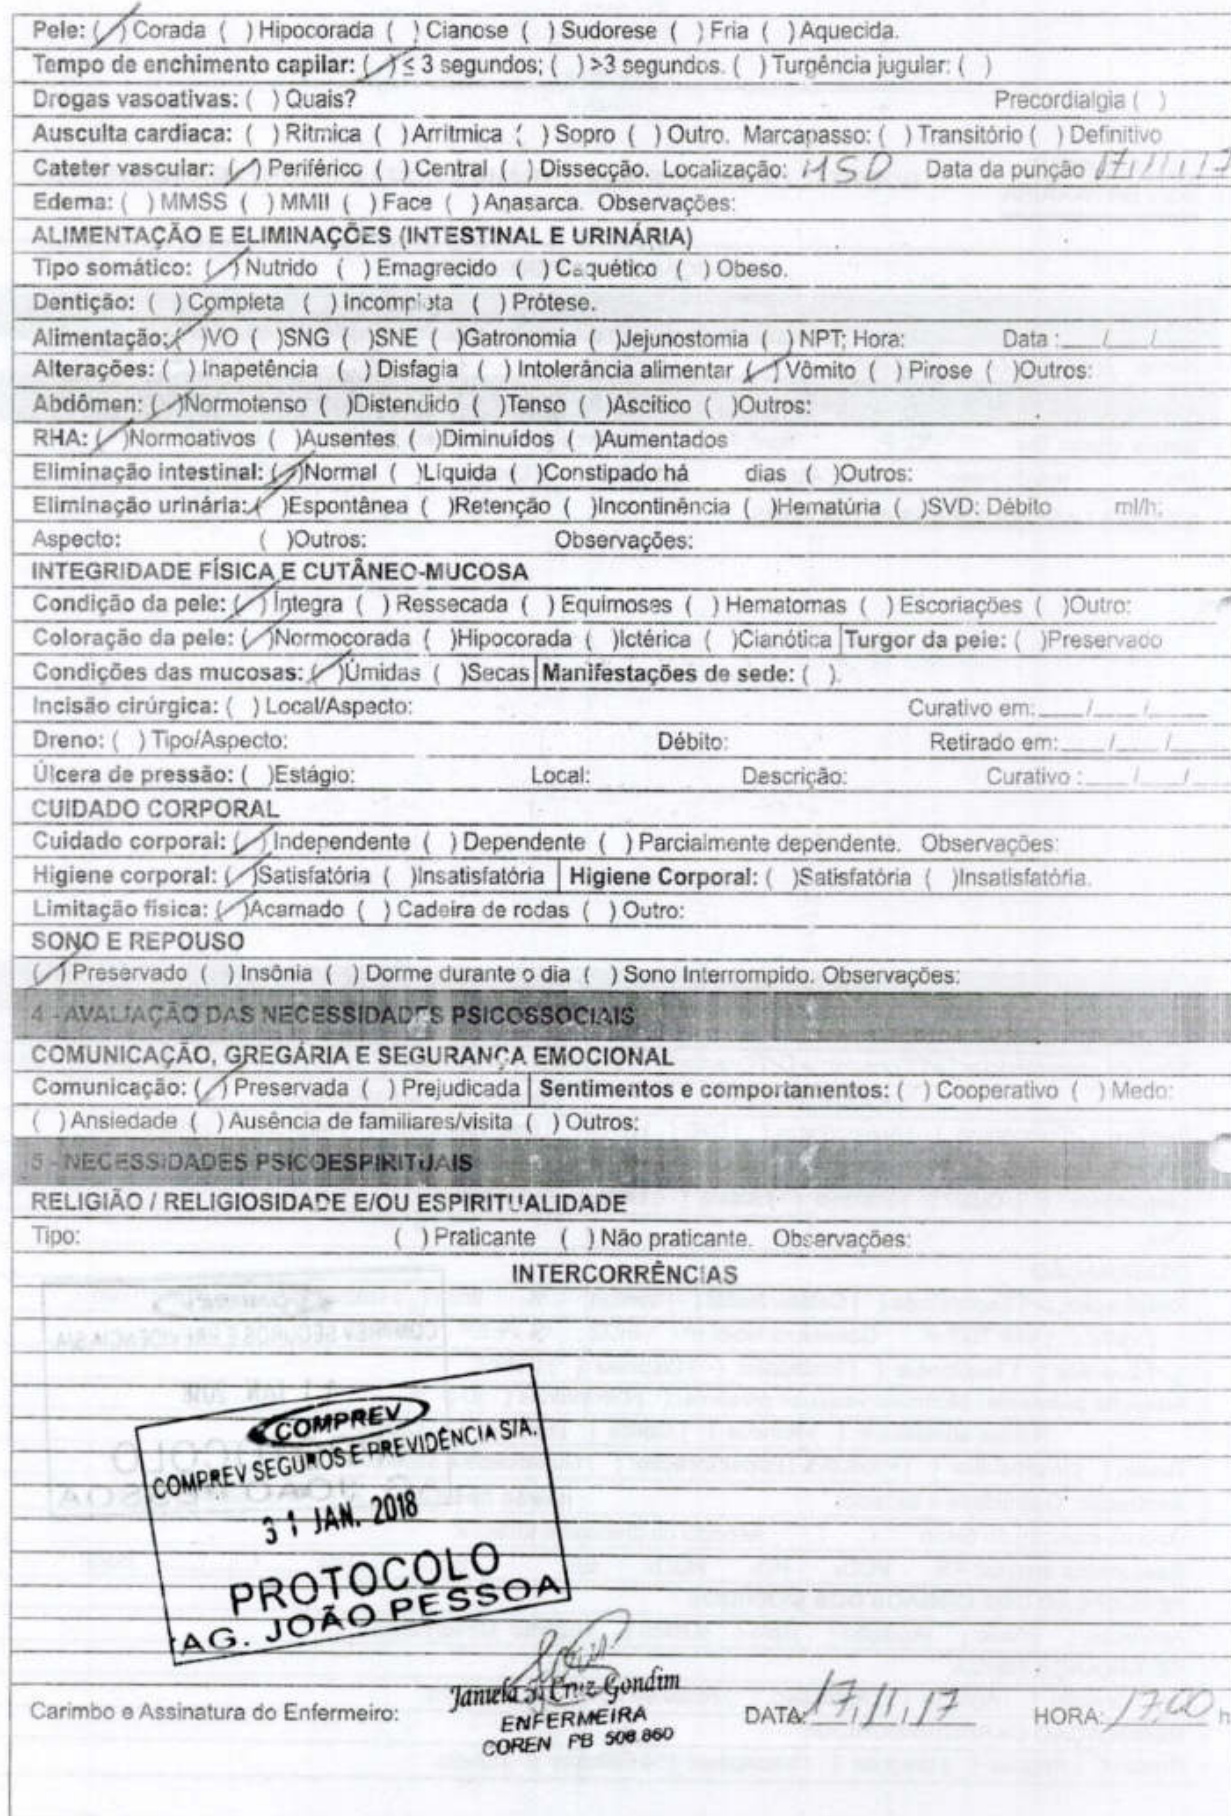 Pele: (/) Corada ( ) Hipocorada ( ) Cianose ( ) Sudorese ( ) Fria ( ) Aquecida.
Tempo de enchimento capilar: (/) ≤ 3 segundos; ( ) >3 segundos. ( ) Turgência jugular: ( )
Drogas vasoativas: ( ) Quais? Precordialgia ( )
Ausculta cardíaca: ( ) Rítmica ( ) Arrítmica ( ) Sopro ( ) Outro. Marcapasso: ( ) Transitório ( ) Definitivo
Cateter vascular: (/) Periférico ( ) Central ( ) Dissecção. Localização: MSD Data da punção 17/11/17
Edema: ( ) MMSS ( ) MMII ( ) Face ( ) Anasarca. Observações:
ALIMENTAÇÃO E ELIMINAÇÕES (INTESTINAL E URINÁRIA)
Tipo somático: (/) Nutrido ( ) Emagrecido ( ) Caquético ( ) Obeso.
Dentição: ( ) Completa ( ) Incompleta ( ) Prótese.
Alimentação: (/) VO ( )SNG ( )SNE ( )Gatronomia ( )Jejunostomia ( ) NPT; Hora: Data : ___/___/___
Alterações: ( ) Inapetência ( ) Disfagia ( ) Intolerância alimentar (/) Vômito ( ) Pirose ( )Outros:
Abdômen: (/)Normotenso ( )Distendido ( )Tenso ( )Ascitico ( )Outros:
RHA: (/)Normoativos ( )Ausentes ( )Diminuídos ( )Aumentados
Eliminação intestinal: (/)Normal ( )Líquida ( )Constipado há dias ( )Outros:
Eliminação urinária: (/)Espontânea ( )Retenção ( )Incontinência ( )Hematúria ( )SVD: Débito ml/h:
Aspecto: ( )Outros: Observações:
INTEGRIDADE FÍSICA E CUTÂNEO-MUCOSA
Condição da pele: (/) Íntegra ( ) Ressecada ( ) Equimoses ( ) Hematomas ( ) Escoriações ( )Outro:
Coloração da pele: (/)Normocorada ( )Hipocorada ( )Ictérica ( )Cianótica | Turgor da pele: ( )Preservado
Condições das mucosas: (/)Úmidas ( )Secas | Manifestações de sede: ( ).
Incisão cirúrgica: ( ) Local/Aspecto: Curativo em: ___/___/___
Dreno: ( ) Tipo/Aspecto: Débito: Retirado em: ___/___/___
Úlcera de pressão: ( )Estágio: Local: Descrição: Curativo : ___/___/___
CUIDADO CORPORAL
Cuidado corporal: (/)Independente ( ) Dependente ( ) Parcialmente dependente. Observações:
Higiene corporal: (/)Satisfatória ( )Insatisfatória | Higiene Corporal: ( )Satisfatória ( )Insatisfatória.
Limitação física: (/)Acamado ( ) Cadeira de rodas ( ) Outro:
SONO E REPOUSO
(/) Preservado ( ) Insônia ( ) Dorme durante o dia ( ) Sono Interrompido. Observações:
4 - AVALIAÇÃO DAS NECESSIDADES PSICOSSOCIAIS
COMUNICAÇÃO, GREGÁRIA E SEGURANÇA EMOCIONAL
Comunicação: (/) Preservada ( ) Prejudicada | Sentimentos e comportamentos: ( ) Cooperativo ( ) Medo:
( ) Ansiedade ( ) Ausência de familiares/visita ( ) Outros:
5 - NECESSIDADES PSICOESPIRITUAIS
RELIGIÃO / RELIGIOSIDADE E/OU ESPIRITUALIDADE
Tipo: ( ) Praticante ( ) Não praticante. Observações:
INTERCORRÊNCIAS
COMPREV
COMPREV SEGUROS E PREVIDÊNCIA S/A.
31 JAN. 2018
PROTOCOLO
AG. JOÃO PESSOA
Cruz Gondim
Carimbo e Assinatura do Enfermeiro: ENFERMEIRA DATA: 17/11/17 HORA: 17:00 h
COREN PB 508.860